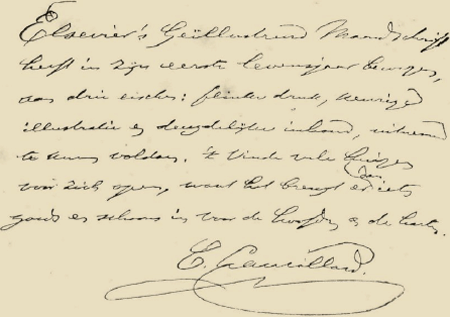 Elsevier's Geïllustreerd Maandschrift
heeft in zijn eerste levensjaar bewezen,
aan drie eischen: flinke druk, keurige
illustratie en deugdelijke inhoud, uitnemend
te kunnen voldoen. 't Vinde vele huizen
voor zich open, want het brengt er iets
goeds en schoons in voor de hoofden en de harten.